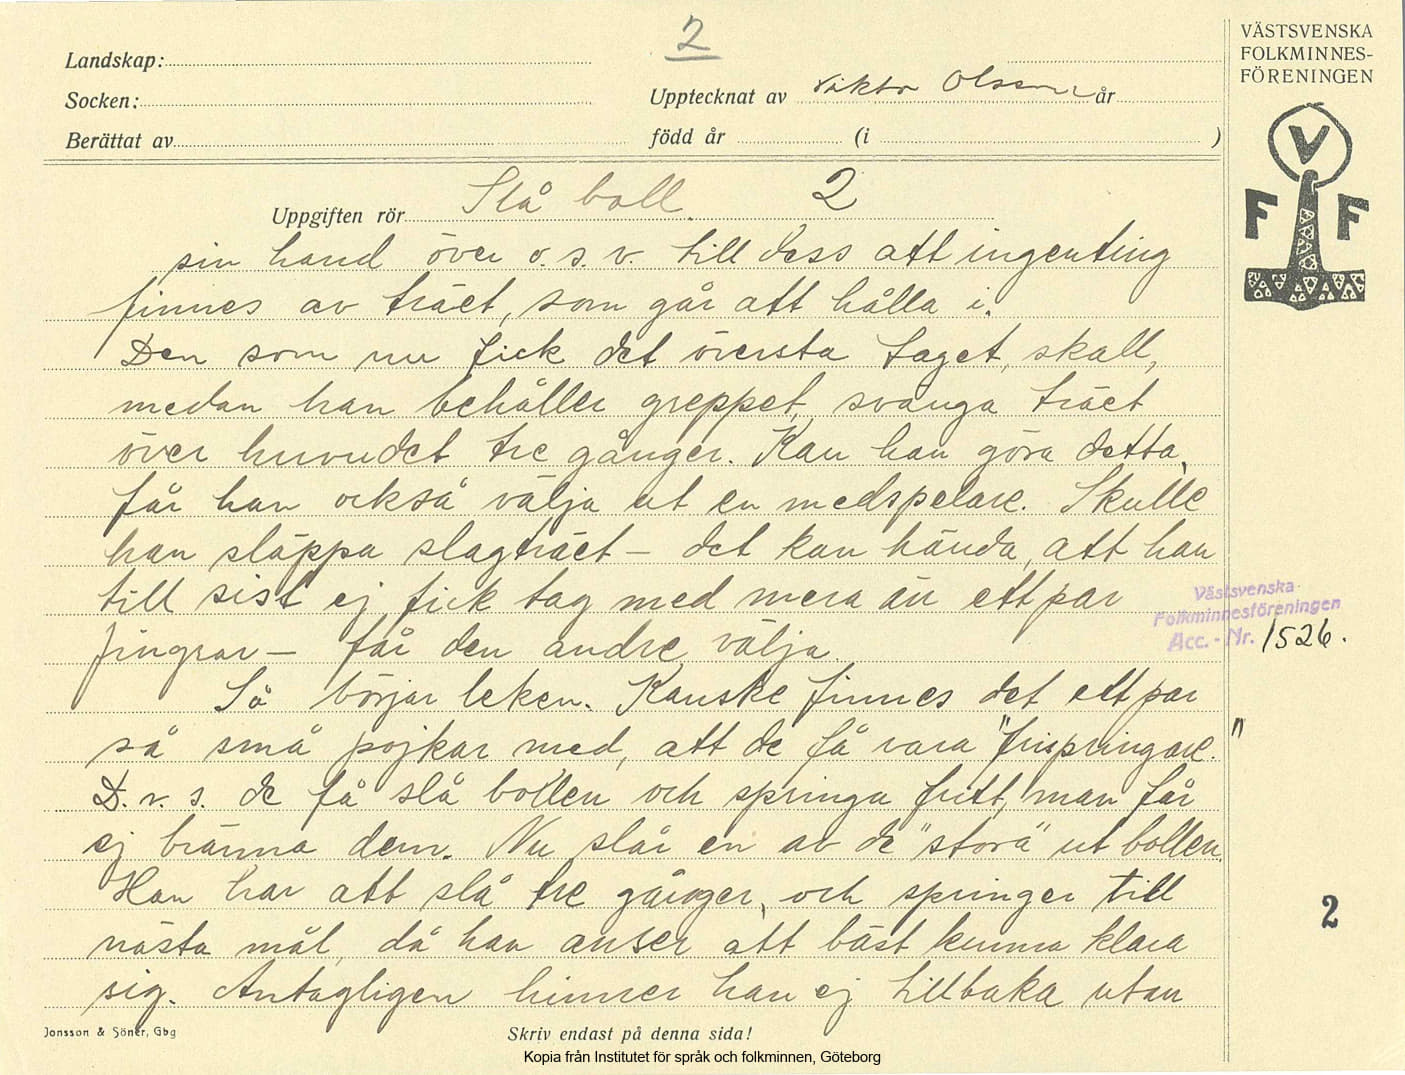 2
VÄSTSVENSKA
FOLKMINNES-
FÖRENINGEN
Landskap:
Socken:
Upptecknat av Viktor Olsson år
Berättat av
född år (i )
V
F F
Uppgiften rör Slå boll. 2
sin hand över o. s. v. till dess att ingenting
finnes av träet, som går att hålla i.
Den som nu fick det översta taget, skall,
medan han behåller greppet, svänga träet
över huvudet tre gånger. Kan han göra detta,
får han också välja ut en medspelare. Skulle
han släppa slagträet – det kan hända, att han
till sist ej fick tag med mera än ett par
fingrar – får den andre välja.
Så börjar leken. Kanske finnes det ett par
så små pojkar med, att de få vara "frispringare."
D. v. s. de få slå bollen och springa fritt, man får
ej bränna dem. Nu slår en av de "stora" ut bollen.
Han har att slå tre gånger, och springer till
nästa mål, då han anser att bäst kunna klara
sig. Antagligen hinner han ej tillbaka utan
Västsvenska
Folkminnesföreningen
Acc. - Nr. 1526.
2
Jonsson & Söner, Gbg
Skriv endast på denna sida!
Kopia från Institutet för språk och folkminnen, Göteborg